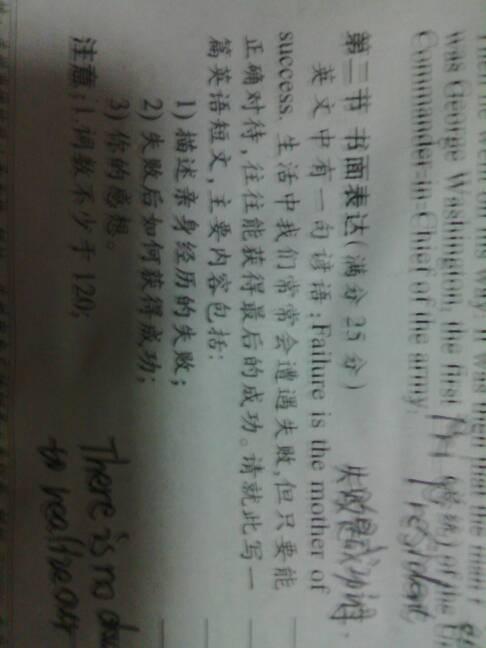 was George Washington, the first President of the
Commander-in-Chief of the army.
第二节 书面表达(满分 25 分)
失败是成功之母.
英文中有一句谚语:Failure is the mother of
success. 生活中我们常常会遭遇失败,但只要能
正确对待,往往能获得最后的成功。请就此写一
篇英语短文,主要内容包括:
1) 描述亲身经历的失败;
2) 失败后如何获得成功;
3) 你的感想。
注意:1. 词数不少于 120;
There is no
to realize our